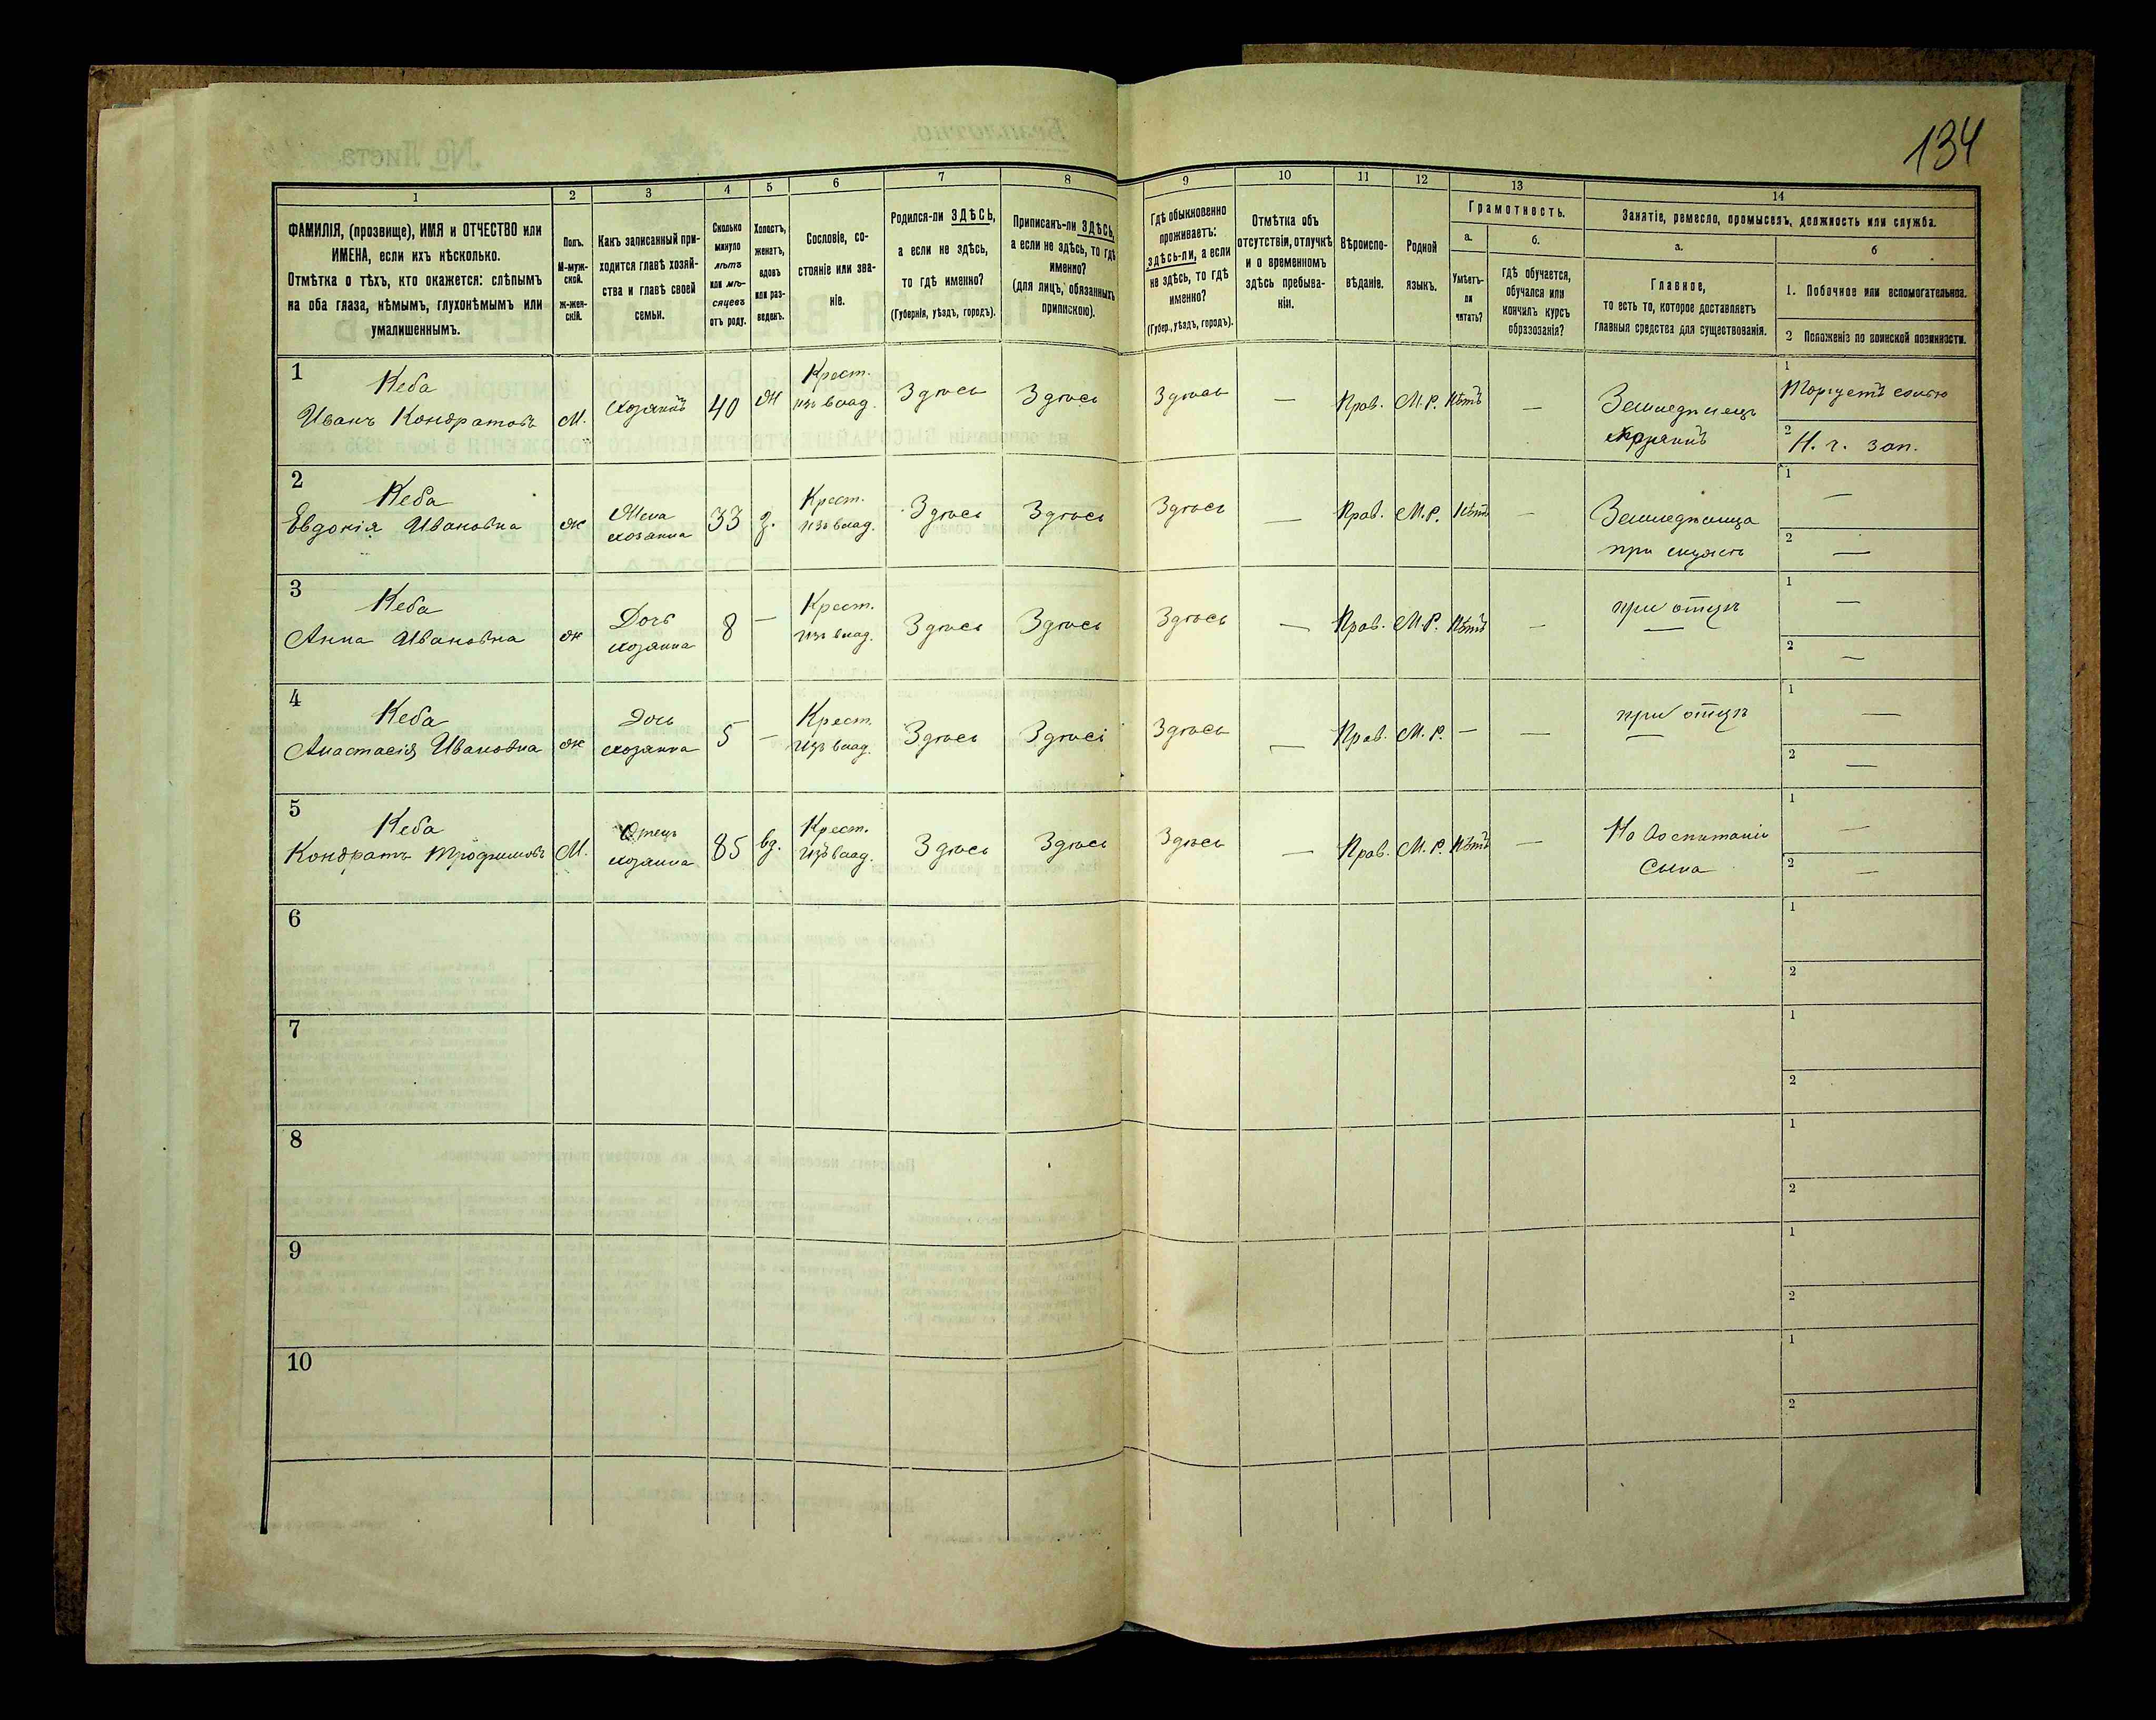 134
1
2
3
4
5
6
7
8
9
10
11
12
13
14
ФАМИЛІЯ, (прозвище), ИМЯ и ОТЧЕСТВО или
ИМЕНА, если ихъ нѣсколько.
Отмѣтка о тѣхъ, кто окажется: слѣпымъ
на оба глаза, нѣмымъ, глухонѣмымъ или
умалишеннымъ.
Полъ.
М-муж-
ской.
Ж-жен-
скій.
Какъ записанный при-
ходится главѣ хозяй-
ства и главѣ своей
семьи.
Сколько
минуло
лѣтъ
или мѣ-
сяцевъ
отъ роду.
Холостъ,
женатъ,
вдовъ
или раз-
веденъ.
Сословіе, со-
стояніе или зва-
ніе.
Родился-ли ЗДѢСЬ,
а если не здѣсь,
то гдѣ именно?
(Губернія, уѣздъ, городъ).
Приписанъ-ли ЗДѢСЬ,
а если не здѣсь, то гдѣ
именно?
(для лицъ, обязанныхъ
припискою).
Гдѣ обыкновенно
проживаетъ:
здѣсь-ли, а если
не здѣсь, то гдѣ
именно?
(Губер., уѣздъ, городъ).
Отмѣтка объ
отсутствіи, отлучкѣ
и о временномъ
здѣсь пребыва-
ніи.
Вѣроиспо-
вѣданіе.
Родной
языкъ.
Грамотность.
а.
Умѣетъ-
ли
читать?
б.
гдѣ обучается,
обучался или
кончилъ курсъ
образованія?
Занятіе, ремесло, промыселъ, должность или служба.
а.
Главное,
то есть то, которое доставляетъ
главныя средства для существованія.
б
1. Побочное или вспомогательное.
2 Положеніе по воинской повинности.
1
Кеба
Иванъ Кондратовъ
М.
Хозяинъ
40
Ж
Крест.
изъ влад.
Здѣсь
Здѣсь
Здѣсь
—
Прав.
М.Р.
Нѣтъ
—
Земледѣлецъ
хозяинъ
1
Торгуетъ солью
2
Н. ч. зап.
2
Кеба
Евдокія Ивановна
ж
Жена
хозяина
33
З.
Крест.
изъ влад.
Здѣсь
Здѣсь
Здѣсь
—
Прав.
М.Р.
Нѣтъ
—
Земледѣлица
при мужѣ
1
—
2
—
3
Кеба
Анна Ивановна
ж
Дочь
хозяина
8
—
Крест.
изъ влад.
Здѣсь
Здѣсь
Здѣсь
—
Прав.
М.Р.
Нѣтъ
—
при отцѣ
1
—
2
—
4
Кеба
Анастасія Ивановна
ж
Дочь
хозяина
5
—
Крест.
изъ влад.
Здѣсь
Здѣсь
Здѣсь
—
Прав.
М.Р.
—
—
при отцѣ
1
—
2
—
5
Кеба
Кондратъ Трофимовъ
М.
Отецъ
хозяина
85
вд.
Крест.
изъ влад.
Здѣсь
Здѣсь
Здѣсь
—
Прав.
М.Р.
Нѣтъ
—
На воспитаніи
Сына
1
—
2
—
6
1
2
7
1
2
8
1
2
9
1
2
10
1
2